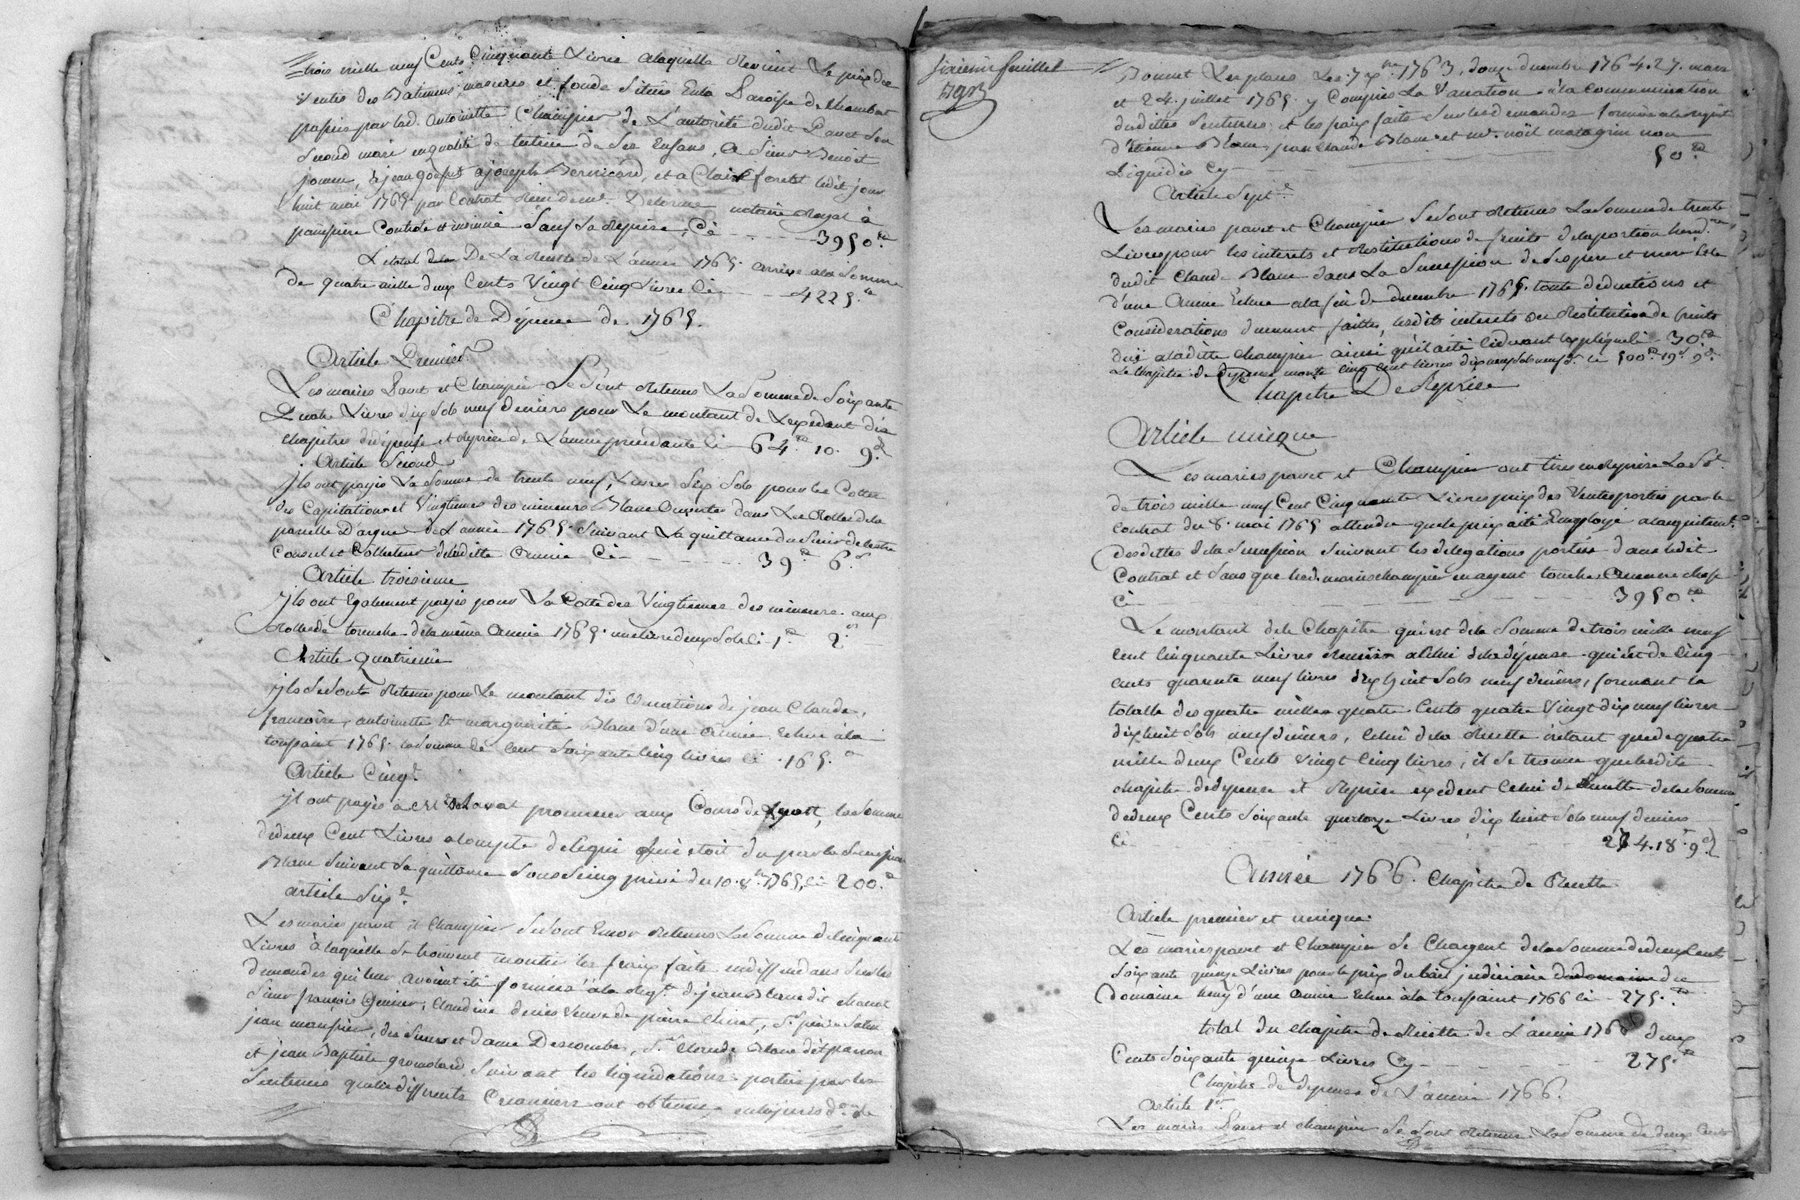 trois mille neuf Cents Cinquante Livres alaquelle Revient Le prix des
Ventes des Batimens masures et fonds Situés Enla Paroisse de Chambost
passés par lad. antoinette Champier de L'autorité dudit Pavet Son
Second mari enqualité de tutrice de Ses Enfans, a Sieur Benoit
a joseph Bernicard, et a Claire foret ledit jour
huit mai 1765 par Contrat notaire Royal à
Controlé et insinué Sauf La Reprise, Ci 3950.tt
L'total De La Recette de L'année 1765. arrive ala Somme
De quatre mille deux Cents Vingt Cinq Livres Ci 4225.tt
Chapitre de Dépense de 1765.
Article Premier
Les mariés Pavet et Champier Se Sont Retenus La Somme de Soixante
Quatre Livres dix Sols neuf deniers pour Le montant de L'exedant des
chapitres dedépense et reprise de L'année precedante Ci 64.tt 10. 9.d
Article Second
jls ont payés La Somme de trente neuf Livres Six Sols pour les Cottes
des Capitation et Vingtiemes des mineurs Blanc dans Les Rolles dela
parcelle D'argue de L'année 1765. Suivant La quittance du Sieur
Consul et Collecteur deladitte Année Ci 39.tt 6.s
Article troisieme
jls ont Egalement payés pour La Cotte des Vingtiemes des mineurs aux
Rolles de dela même Année 1765. une Livre deux Sols Ci 1.tt 2.s
Article Quatrieme
jls Se Sont Retenus pour Le montant des de jean Claude,
francoise, antoinette Et marguerite Blanc d'une Année Echue ala
toussaint 1765. la Somme de Cent Soixante Cinq livres Ci 165.tt
Article Cinq.e
jls ont payés a procureur aux Cours de Lyon, la Somme
de deux Cent Livres acompte de Cequi étoit du par la Succession
Blanc Suivant Sa quittance Sous Seing privé du 10. 8.bre 1765, Ci 200.tt
article Six.e
Les mariés pavet et Champier Se Sont Encor Retenus La Somme de Cinquante
Livres à laquelle Se trouvent monter les fraix faits
demandes qui leur avoient été formées ala Req.te de jean
Sieur françois Claudine veuve de pierre S.r pierre
jean des Sieurs et dame Descombes, S.r Claude Blanc
et jean Baptiste Suivant les liquidations portées par les
Sentences que les differents Creanciers ont obtenus
Sixieme feuillet
1763, douze decembre 1764. 27. mars
et 24. juillet 1765. y Compris La Vacation à la Communication
desdittes Sentences et les fraix faits Sur les demandes formées ala req.te
d'Etienne Blanc, jean Claude Blanc et non
Liquidés Cy 50.tt
Article Sept.e
Les mariés pavet et Champier Se Sont Retenus La Somme de trente
Livres pour les interets et Restitutions de fruits dela portion hered.re
dudit Claude Blanc dans La Succession de Ses pere et mere
d'une Année Echue ala fin de decembre 1765. toute deductions et
Considerations dument faittes, lesdits interets ou Restitution de fruits
dus aladitte Champier ainsi qu'il a été Cidevant Expliqué Ci 30.tt
Le chapitre de dépense monte cinq cent livres dix neuf Sols neuf d. Ci 500.tt 19.s 9.d
Chapitre De Reprise
Article unique
Les mariés pavet et Champier ont tirés en Reprise La S.e
de trois mille neuf Cent Cinquante Livres prix des Ventes portées par le
Contrat du 8. mai 1765 attendu que le prix a été Employé alaquittem.t
des dettes dela Succession Suivant les delegations portées dans ledit
Contrat et Sans que lesd. mariés champier en ayent touchés Aucune chose
Ci 3950.tt
Le montant dele Chapitre qui est dela Somme de trois mille neuf
cent Cinquante Livres Réuni a Celui dela depense qui est de Cinq
cents quarente neuf livres dix huit Sols neuf deniers, formant la
totalle des quatre milles quatre Cents quatre Vingt dix neuf livres
dix huit Sols neuf deniers, Celui dela Recette n'étant que de quatre
mille deux Cents Vingt Cinq livres, il Se trouve que ledit
chapitre dedepense et Reprise exedent Celui de Recette dela Somme
de deux Cents Soixante quatorze Livres dix huit Sols neuf deniers
Ci 274.18.s 9.d
Année 1766. Chapitre de Recette
Article premier et unique.
Les mariés pavet et Champier Se Chargent dela Somme de deux Cent
Soixante quinze Livres pour le prix du bail judiciaire des
Domaine d'une Année Echue à la toussaint 1766 Ci 275.tt
total du chapitre de Recette de L'année 1766 deux
Cents Soixante quinze Livres Cy 275.tt
Chapitre de depense de L'année 1766.
Article 1.er
Les mariés Pavet et champier Se Sont Retenus La Somme de deux Cents